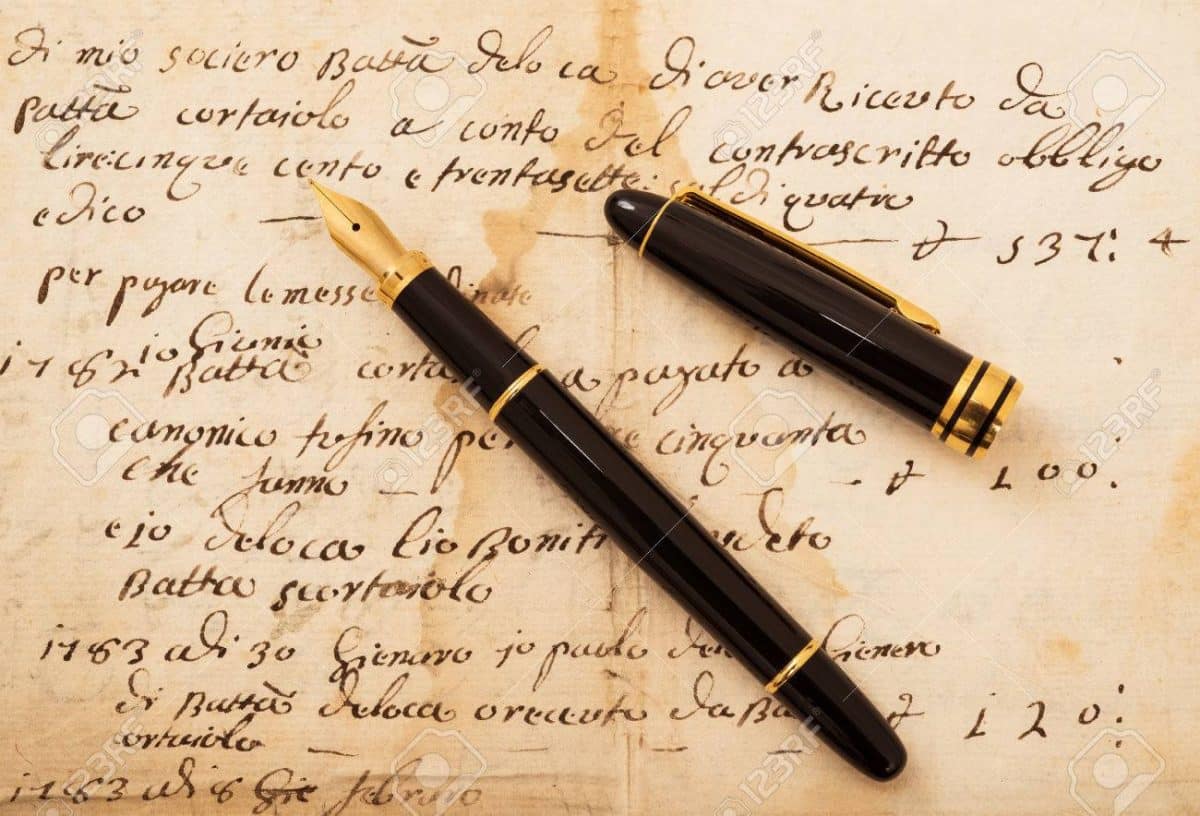 di mio sociero Battā deloca di aver Riceuto da
Battā cortaiolo a conto del contrascritto obbligo
lire: cinque cento e trentasette: quatre
e dico — — 537: 4
per pagare le messe
10 Gienaie
1782 Battā a pagato a
canonico tufino cinquanta
che funno — 100:
e jo deloca lio Boniti
Batta scortaiolo
1783 adi 30 Gienaro jo paolo Genero
di Battā deloca o receuto da 120:
cortaiolo — — —
1783 adi 8 febraro
123RF